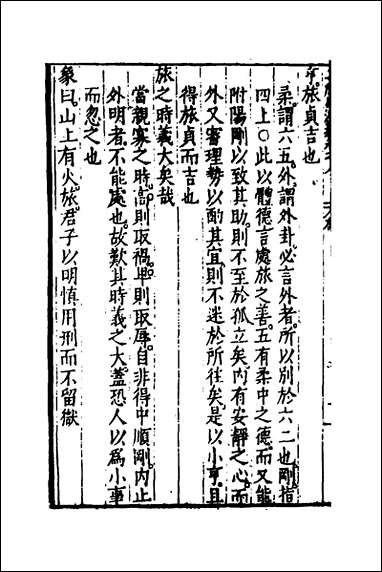 亨旅貞吉也
柔謂六五。外謂外卦。必言外者。所以別於六二也。剛指
四上○此以體德言處旅之善。五有柔中之德。而又能
附陽剛以致其助。則不至於孤立矣。内有安靜之心。而
外又審理勢以酌其宜。則不迷於所往矣。是以小亨。且
得旅貞而吉也
旅之時義大矣哉
當親寡之時。高則取禍。卑則取辱。自非得中順剛。内止
外明者。不能處也。故歎其時義之大。蓋恐人以爲小事
而忽之也
象曰。山上有火。旅。君子以明慎用刑而不留獄